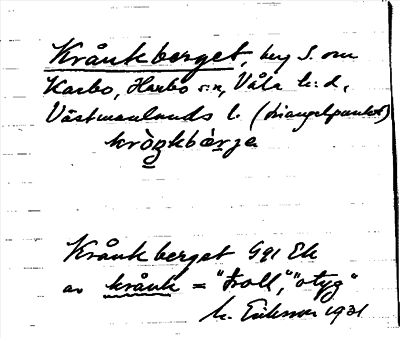 Krånkberget, berg S. om
Karbo, Harbo s:n, Våla h:d,
Västmanlands l. (triangelpunkt)
kròŋkbæ̀rja
Krånkberget G91 Ek
av krånk = "troll", "otyg"
M. Eriksson 1931